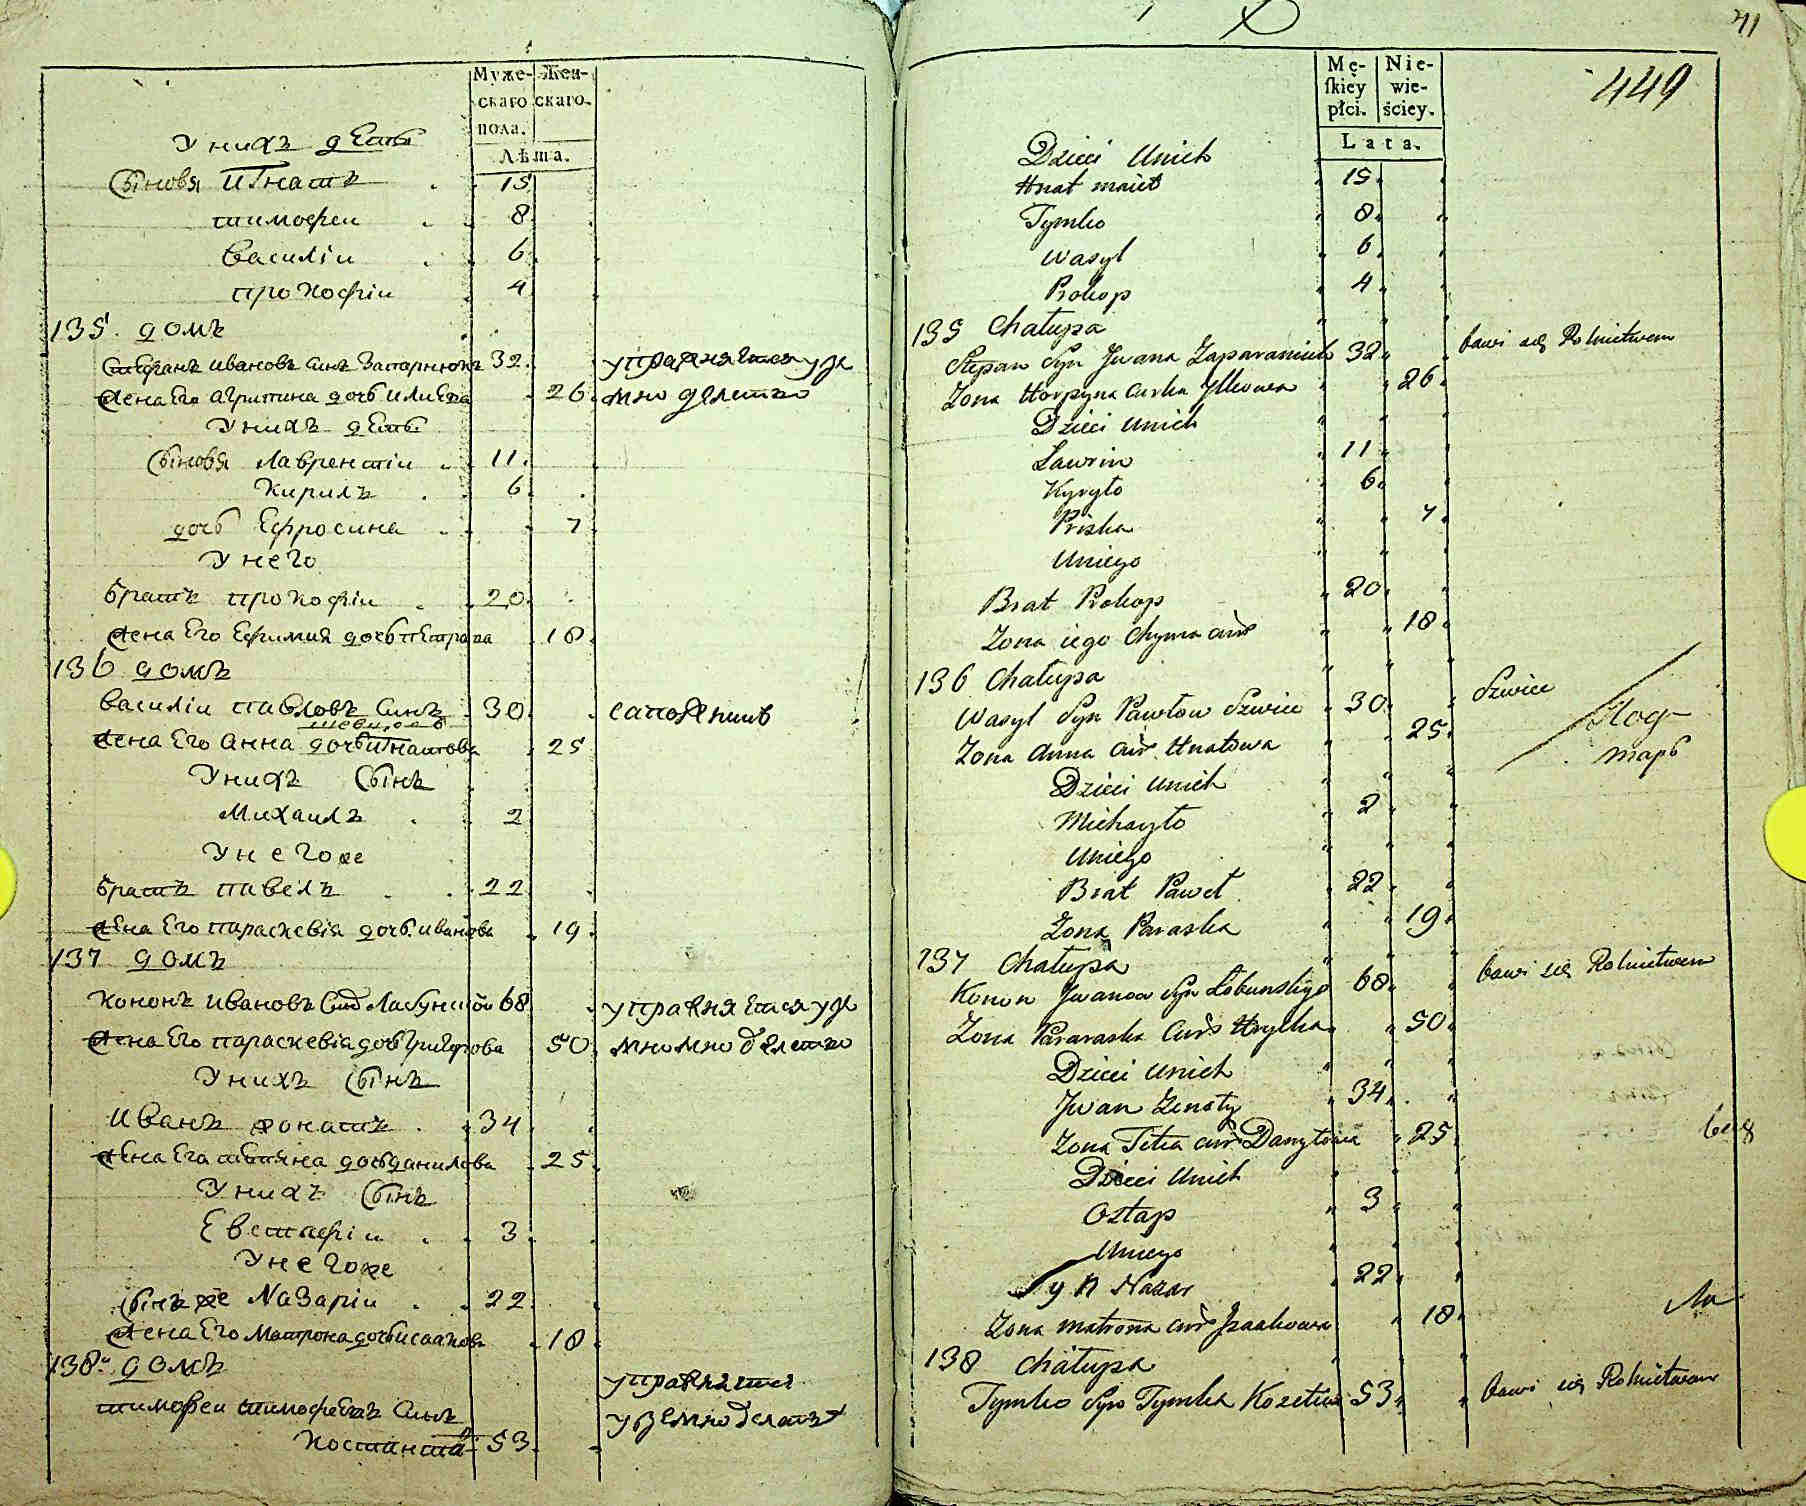 Муже-
скаго
пола.
Жен-
скаго.
Лѣта.
У нихъ дети
Сыновя Игнатъ 15
тимофеи 8
Василіи 6
прокофіи 4
135. домъ
Стефанъ Ивановъ Синъ Запорнюкъ 32.
Жена Его агрипина дочь илиева 26.
У нихъ дети
Сыновя Лаврентіи 11.
Кирилъ 6.
дочь Ефросина 7
У него
братъ прокофіи 20.
Жена Его Ефимия дочь петрова 18.
136 домъ
Василіи павловъ Синъ 30 сапожникъ
Жена Его Анна дочь Игнатова 25
У нихъ Сынъ
Михаилъ 2
У негоже
братъ павелъ 22
Жена Его параскевія дочь иванова 19.
137 домъ
Кононъ Ивановъ 68
Жена Его параскевія дочь григорова 50.
У нихъ Сынъ
Иванъ жонатъ 34
Жена Его татяна дочь данилова 25
У нихъ Сынъ
Евстафіи 3.
У негоже
Сынъ же Назаріи 22.
Жена Его Матрона дочь исаакова 18
138 домъ
тимофеи тимофеевъ Синъ
53.
41
449
Mę-
ſkiey
płci.
Nie-
wie-
ściey.
Lata.
Dzieci Unich
Hnat 15
Tymko 8
Wasyl 6
Prokop 4
135 Chałupa bawi się Rolnictwem
Stepan Syn Jwana Zaparaniuk 32
Zona Horpyna Curka Jlkowa 26
Dzieci Unich
Ławrin 11
Kyryło 6
Priska 7
Uniego
Brat Prokop 20
Zona iego Chyma 18
136 Chałupa
Wasyl Syn Pawłow Szwiec 30 Szwiec
Zona Anna Hnatowa 25
Dzieci Unich
Michayło 2
Uniego
Brat Paweł 22
Zona Paraska 19
137 Chałupa bawi się Rolnictwem
Konon Jwanow Syn Łobunskiego 68
Zona Pararaska Hryćka 50
Dzieci Unich
Jwan Zenaty 34
Zona Tetia Danyłowa 25
Dzieci Unich
Ostap 3
Uniego
Syn Nazar 22
Zona Matrona Jzaakowa 18
138 Chałupa
Tymko Syn Tymka 53 bawi się Rolnictwem